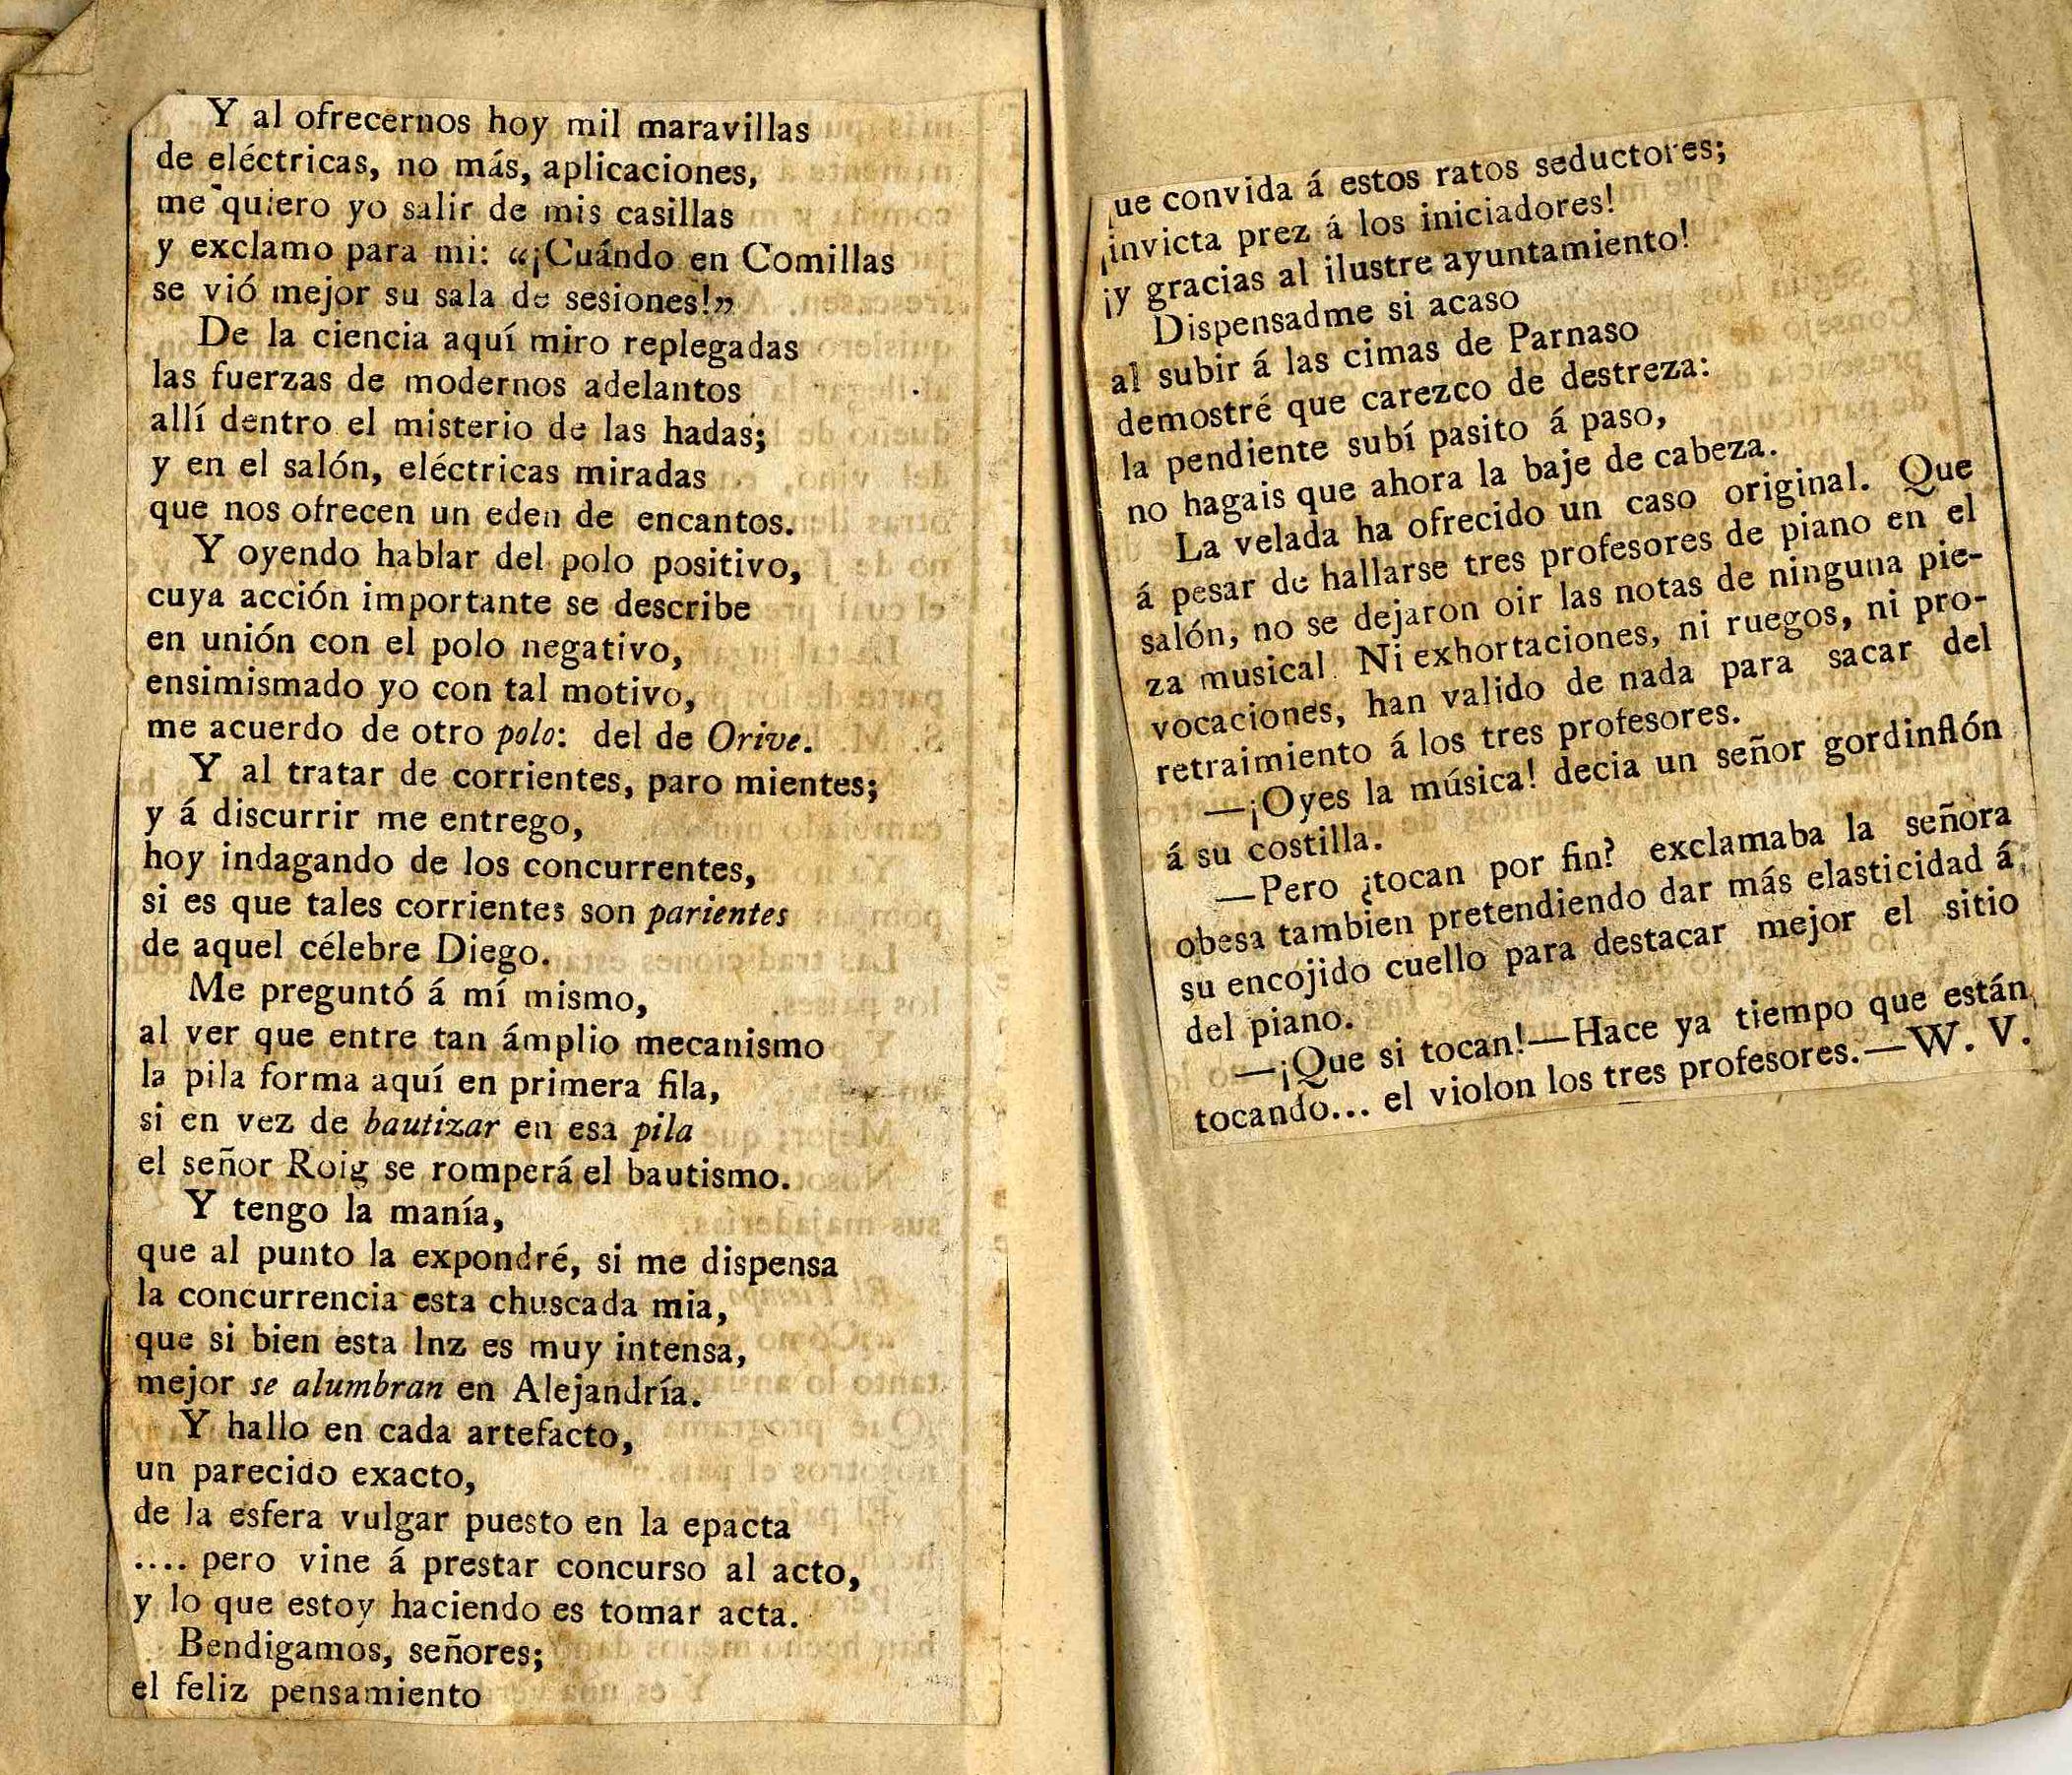 Y al ofrecernos hoy mil maravillas
de eléctricas, no más, aplicaciones,
me quiero yo salir de mis casillas
y exclamo para mi: “¡Cuándo en Comillas
se vió mejor su sala de sesiones!”
De la ciencia aquí miro replegadas
las fuerzas de modernos adelantos
allí dentro el misterio de las hadas;
y en el salón, eléctricas miradas
que nos ofrecen un eden de encantos.
Y oyendo hablar del polo positivo,
cuya acción importante se describe
en unión con el polo negativo,
ensimismado yo con tal motivo,
me acuerdo de otro polo: del de Orive.
Y al tratar de corrientes, paro mientes;
y á discurrir me entrego,
hoy indagando de los concurrentes,
si es que tales corrientes son parientes
de aquel célebre Diego.
Me preguntó á mí mismo,
al ver que entre tan ámplio mecanismo
la pila forma aquí en primera fila,
si en vez de bautizar en esa pila
el señor Roig se romperá el bautismo.
Y tengo la manía,
que al punto la expondré, si me dispensa
la concurrencia esta chuscada mia,
que si bien esta lnz es muy intensa,
mejor se alumbran en Alejandría.
Y hallo en cada artefacto,
un parecido exacto,
de la esfera vulgar puesto en la epacta
.... pero vine á prestar concurso al acto,
y lo que estoy haciendo es tomar acta.
Bendigamos, señores;
el feliz pensamiento
ue convida á estos ratos seductores;
¡invicta prez á los iniciadores!
¡y gracias al ilustre ayuntamiento!
Dispensadme si acaso
al subir á las cimas de Parnaso
demostré que carezco de destreza:
la pendiente subí pasito á paso,
no hagais que ahora la baje de cabeza.
La velada ha ofrecido un caso original. Que
á pesar de hallarse tres profesores de piano en el
salón, no se dejaron oir las notas de ninguna pie-
za musical. Ni exhortaciones, ni ruegos, ni pro-
vocaciones, han valido de nada para sacar del
retraimiento á los tres profesores.
—¡Oyes la música! decia un señor gordinflón
á su costilla.
—Pero ¿tocan por fin? exclamaba la señora
obesa tambien pretendiendo dar más elasticidad á
su encojido cuello para destacar mejor el sitio
del piano.
—¡Que si tocan!—Hace ya tiempo que están
tocando... el violon los tres profesores.—W. V.